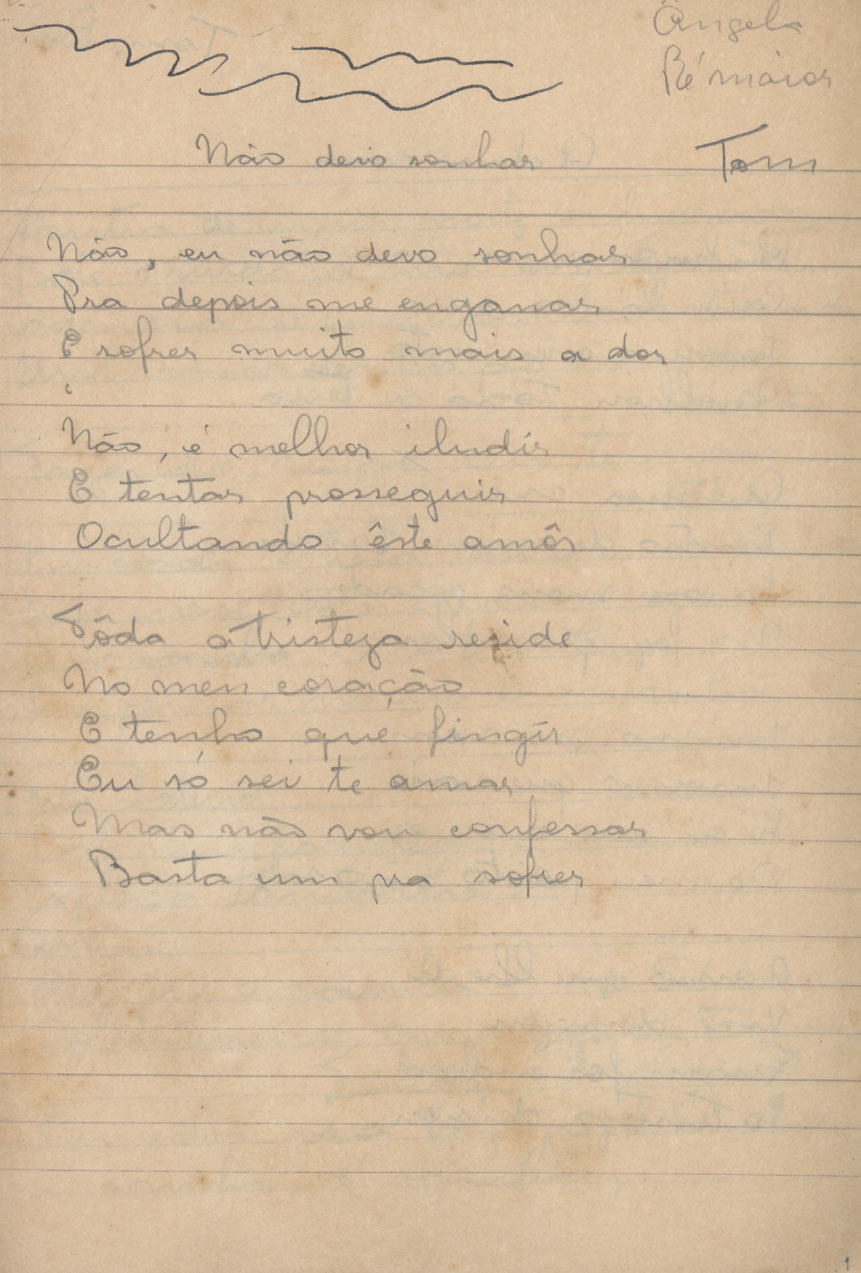 Ângela
Ré maior
Não devo sonhar
Tom
Não, eu não devo sonhar
Pra depois me enganar
E sofrer muito mais a dor
Não, é melhor iludir
E tentar prosseguir
Ocultando êste amôr
Tôda a tristeza reside
No meu coração
E tenho que fingir
Eu só sei te amar
Mas não vou confessar
Basta um pra sofrer
1